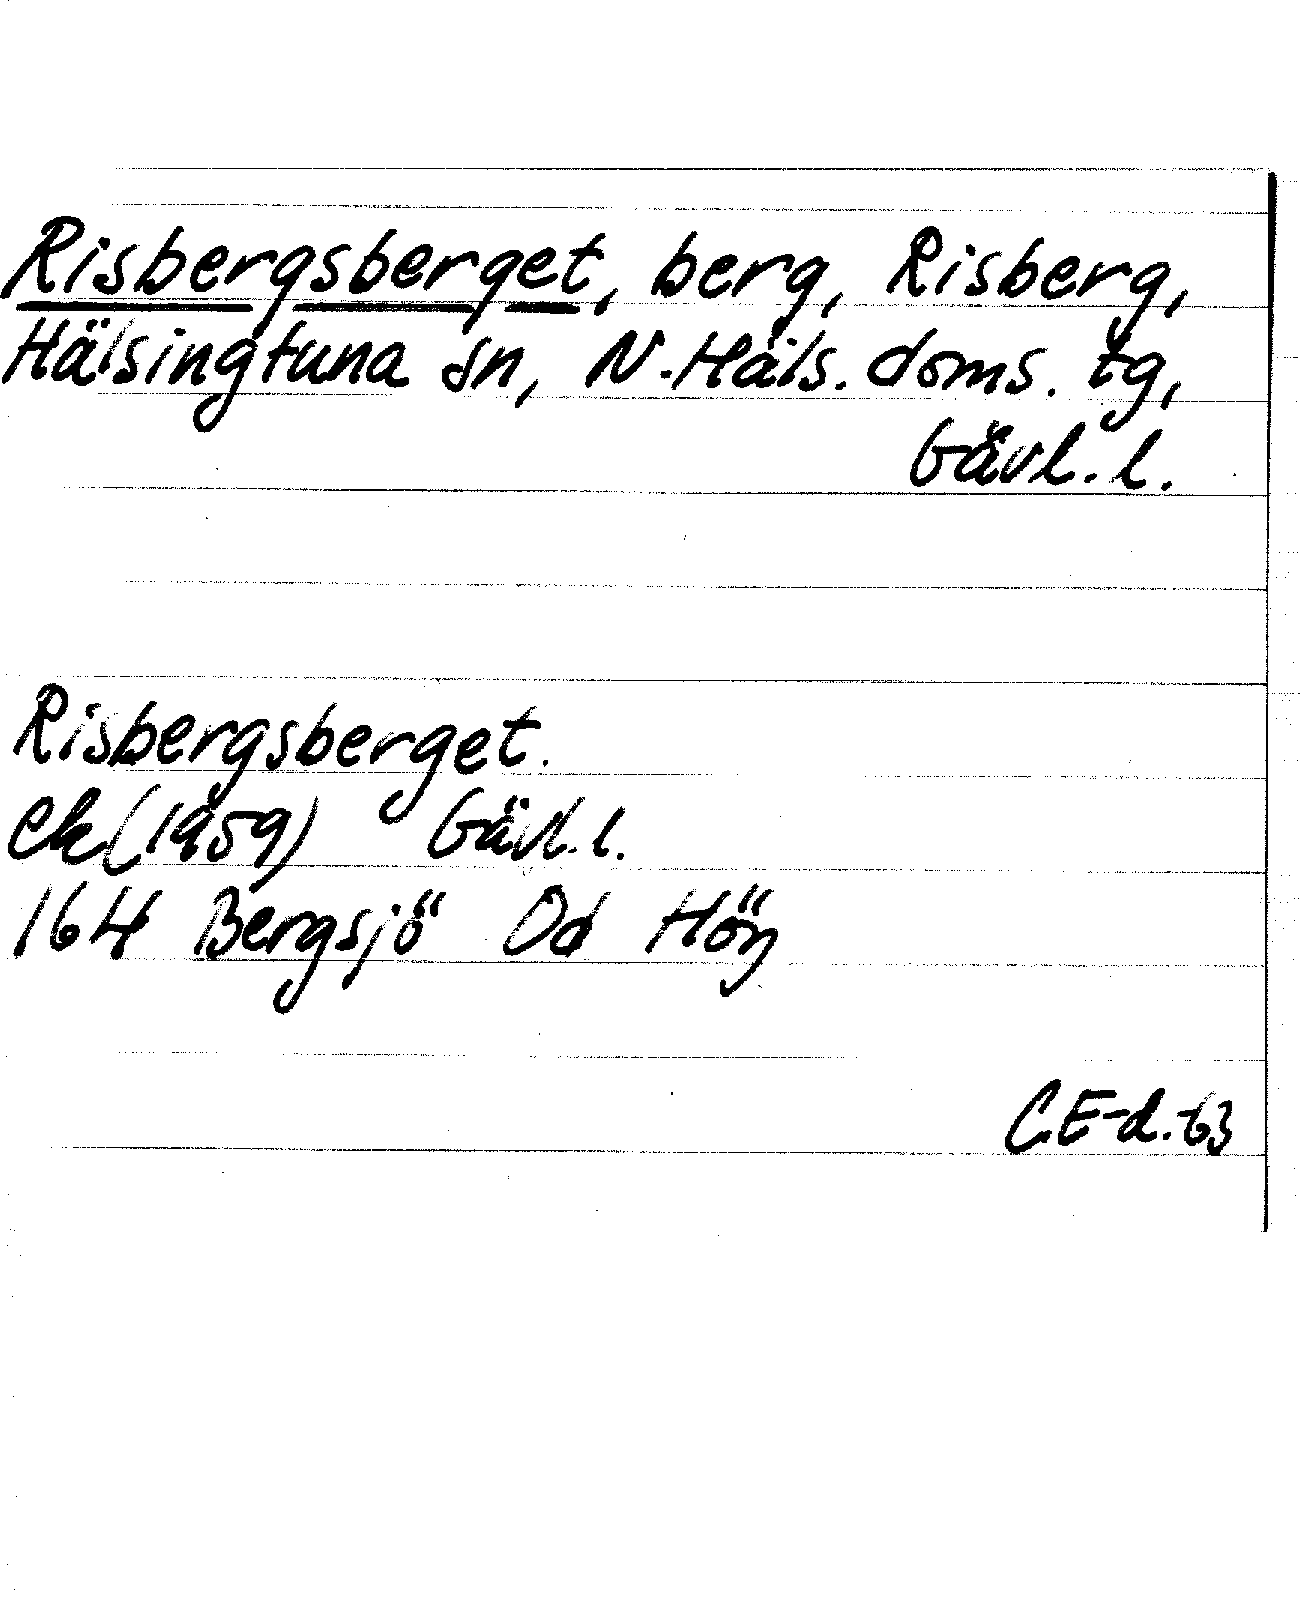 Risbergsberget, berg, Risberg,
Hälsingtuna sn, N. Häls. doms. tg,
Gävl. l.
Risbergsberget.
Ek (1959) Gävl. l.
16H Bergsjö Od Hög
C.E-d.-63